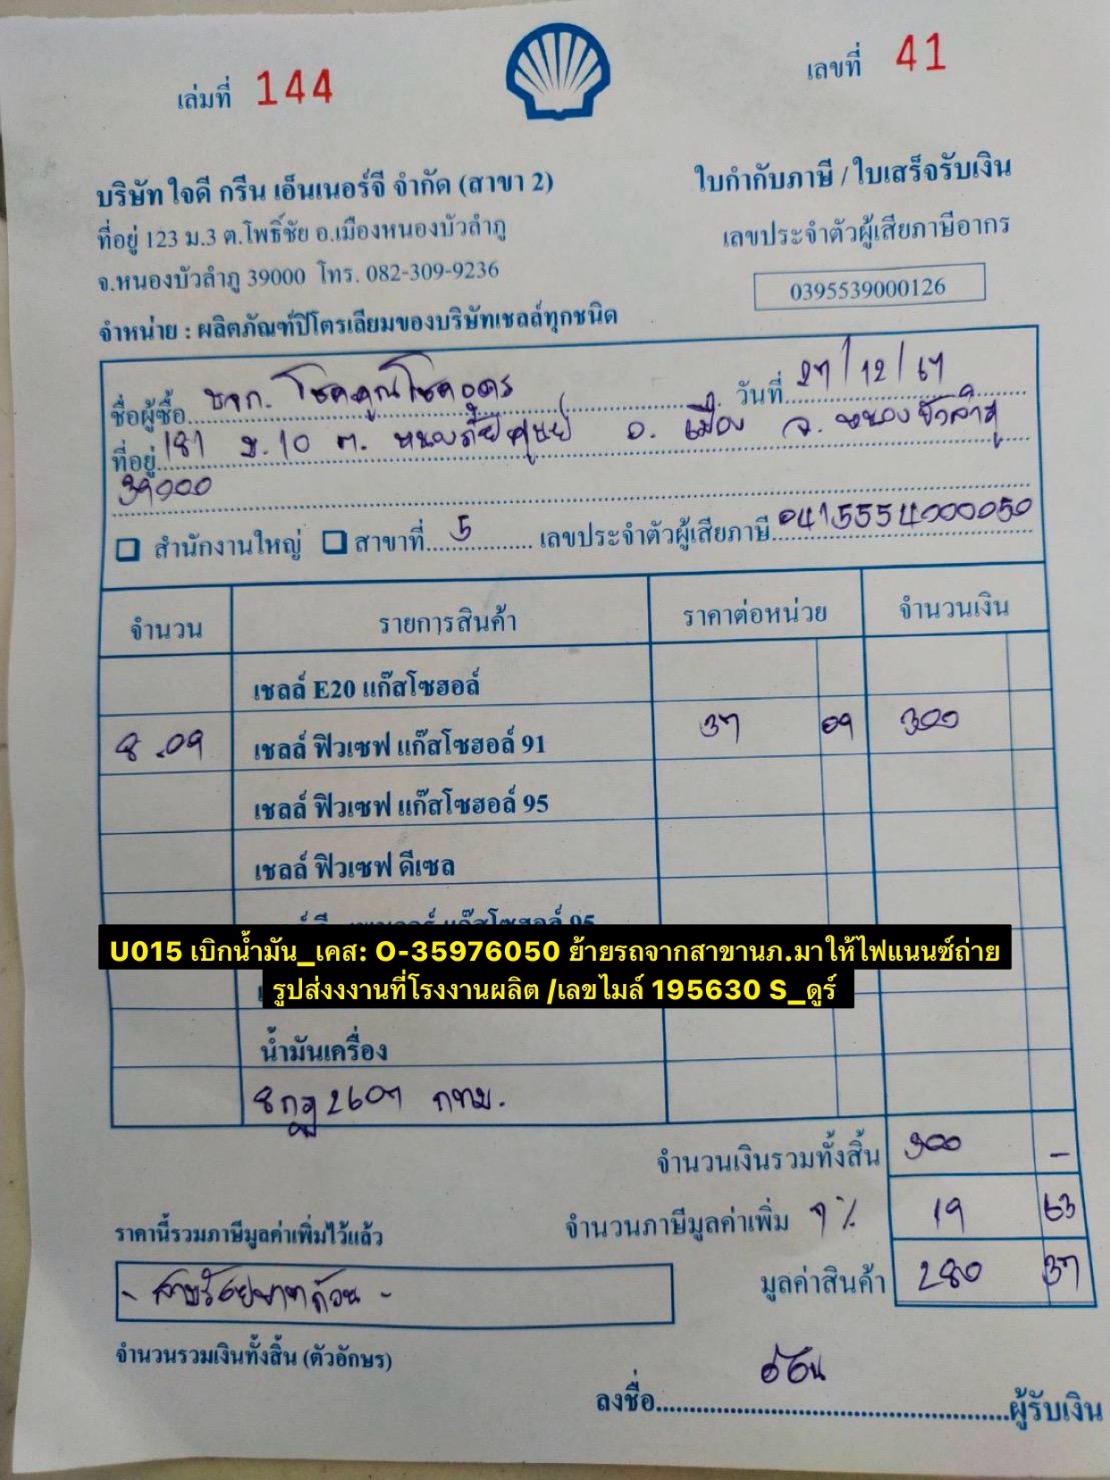 เล่มที่ 144
เลขที่ 41
บริษัท ใจดี กรีน เอ็นเนอร์จี จำกัด (สาขา 2)
ใบกำกับภาษี / ใบเสร็จรับเงิน
ที่อยู่ 123 ม.3 ต.โพธิ์ชัย อ.เมืองหนองบัวลำภู
เลขประจำตัวผู้เสียภาษีอากร
จ.หนองบัวลำภู 39000 โทร. 082-309-9236
0395539000126
จำหน่าย : ผลิตภัณฑ์ปิโตรเลียมของบริษัทเชลล์ทุกชนิด
ชื่อผู้ซื้อ หจก. โชคคูณโชคอุดร วันที่ 27/12/67
ที่อยู่ 181 ม.10 ต. หนองภัยศูนย์ อ. เมือง จ. หนองบัวลำภู
39000
สำนักงานใหญ่ สาขาที่ 5 เลขประจำตัวผู้เสียภาษี 0415554000050
จำนวน รายการสินค้า ราคาต่อหน่วย จำนวนเงิน
เชลล์ E20 แก๊สโซฮอล์
8.09 เชลล์ ฟิวเซฟ แก๊สโซฮอล์ 91 37 09 300
เชลล์ ฟิวเซฟ แก๊สโซฮอล์ 95
เชลล์ ฟิวเซฟ ดีเซล
แก๊สโซฮอล์ 95
U015 เบิกน้ำมัน_เคส: O-35976050 ย้ายรถจากสาขานภ.มาให้ไฟแนนซ์ถ่าย
รูปส่งงงานที่โรงงานผลิต /เลขไมล์ 195630 S_ดูร์
น้ำมันเครื่อง
8กฎ2607 กทม.
จำนวนเงินรวมทั้งสิ้น 300 -
ราคานี้รวมภาษีมูลค่าเพิ่มไว้แล้ว
จำนวนภาษีมูลค่าเพิ่ม 7% 19 63
- สามร้อยบาทถ้วน -
มูลค่าสินค้า 280 37
จำนวนรวมเงินทั้งสิ้น (ตัวอักษร)
ลงชื่อ ผู้รับเงิน